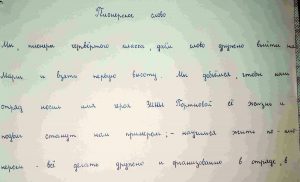 Пионерское слово
Мы, пионеры четвёртого класса, даём слово дружно выйти на
Марш и взять первую высоту. Мы добьёмся, чтобы наш
отряд носил имя героя Зины Портновой её жизнь и
подвиг станут нам примером; - научимся жить по-пио-
нерски - всё делать дружно и организованно в отряде, в